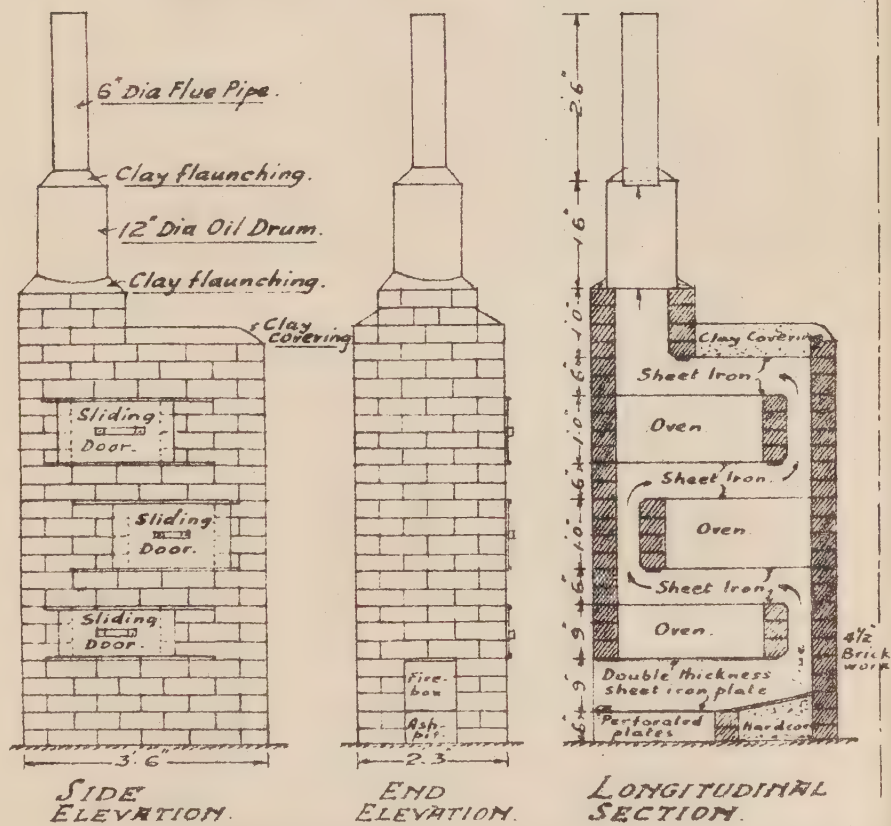 6" Dia Flue Pipe.
Clay flaunching.
12" Dia Oil Drum.
Clay flaunching.
Clay
covering
Sliding
Door.
Sliding
Door.
Sliding
Door.
3'6"
SIDE
ELEVATION.
Fire-
box
Ash-
pit.
2'.3"
END
ELEVATION.
2'.6"
1'.6"
1'.0"
6"
1'.0"
6"
1'.0"
6"
9"
9"
6"
Clay Covering
Sheet Iron
Oven.
Sheet Iron.
Oven.
Sheet Iron
Oven.
Double thickness
sheet iron plate
Perforated
plates
Hardcore
4½"
Brick
work
LONGITUDINAL
SECTION.